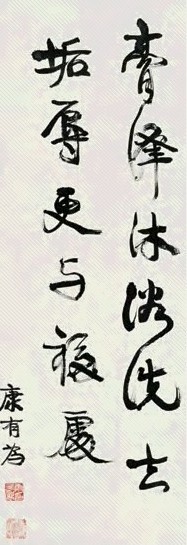 膏泽沐浴洗去
垢辱更与福处
康有為